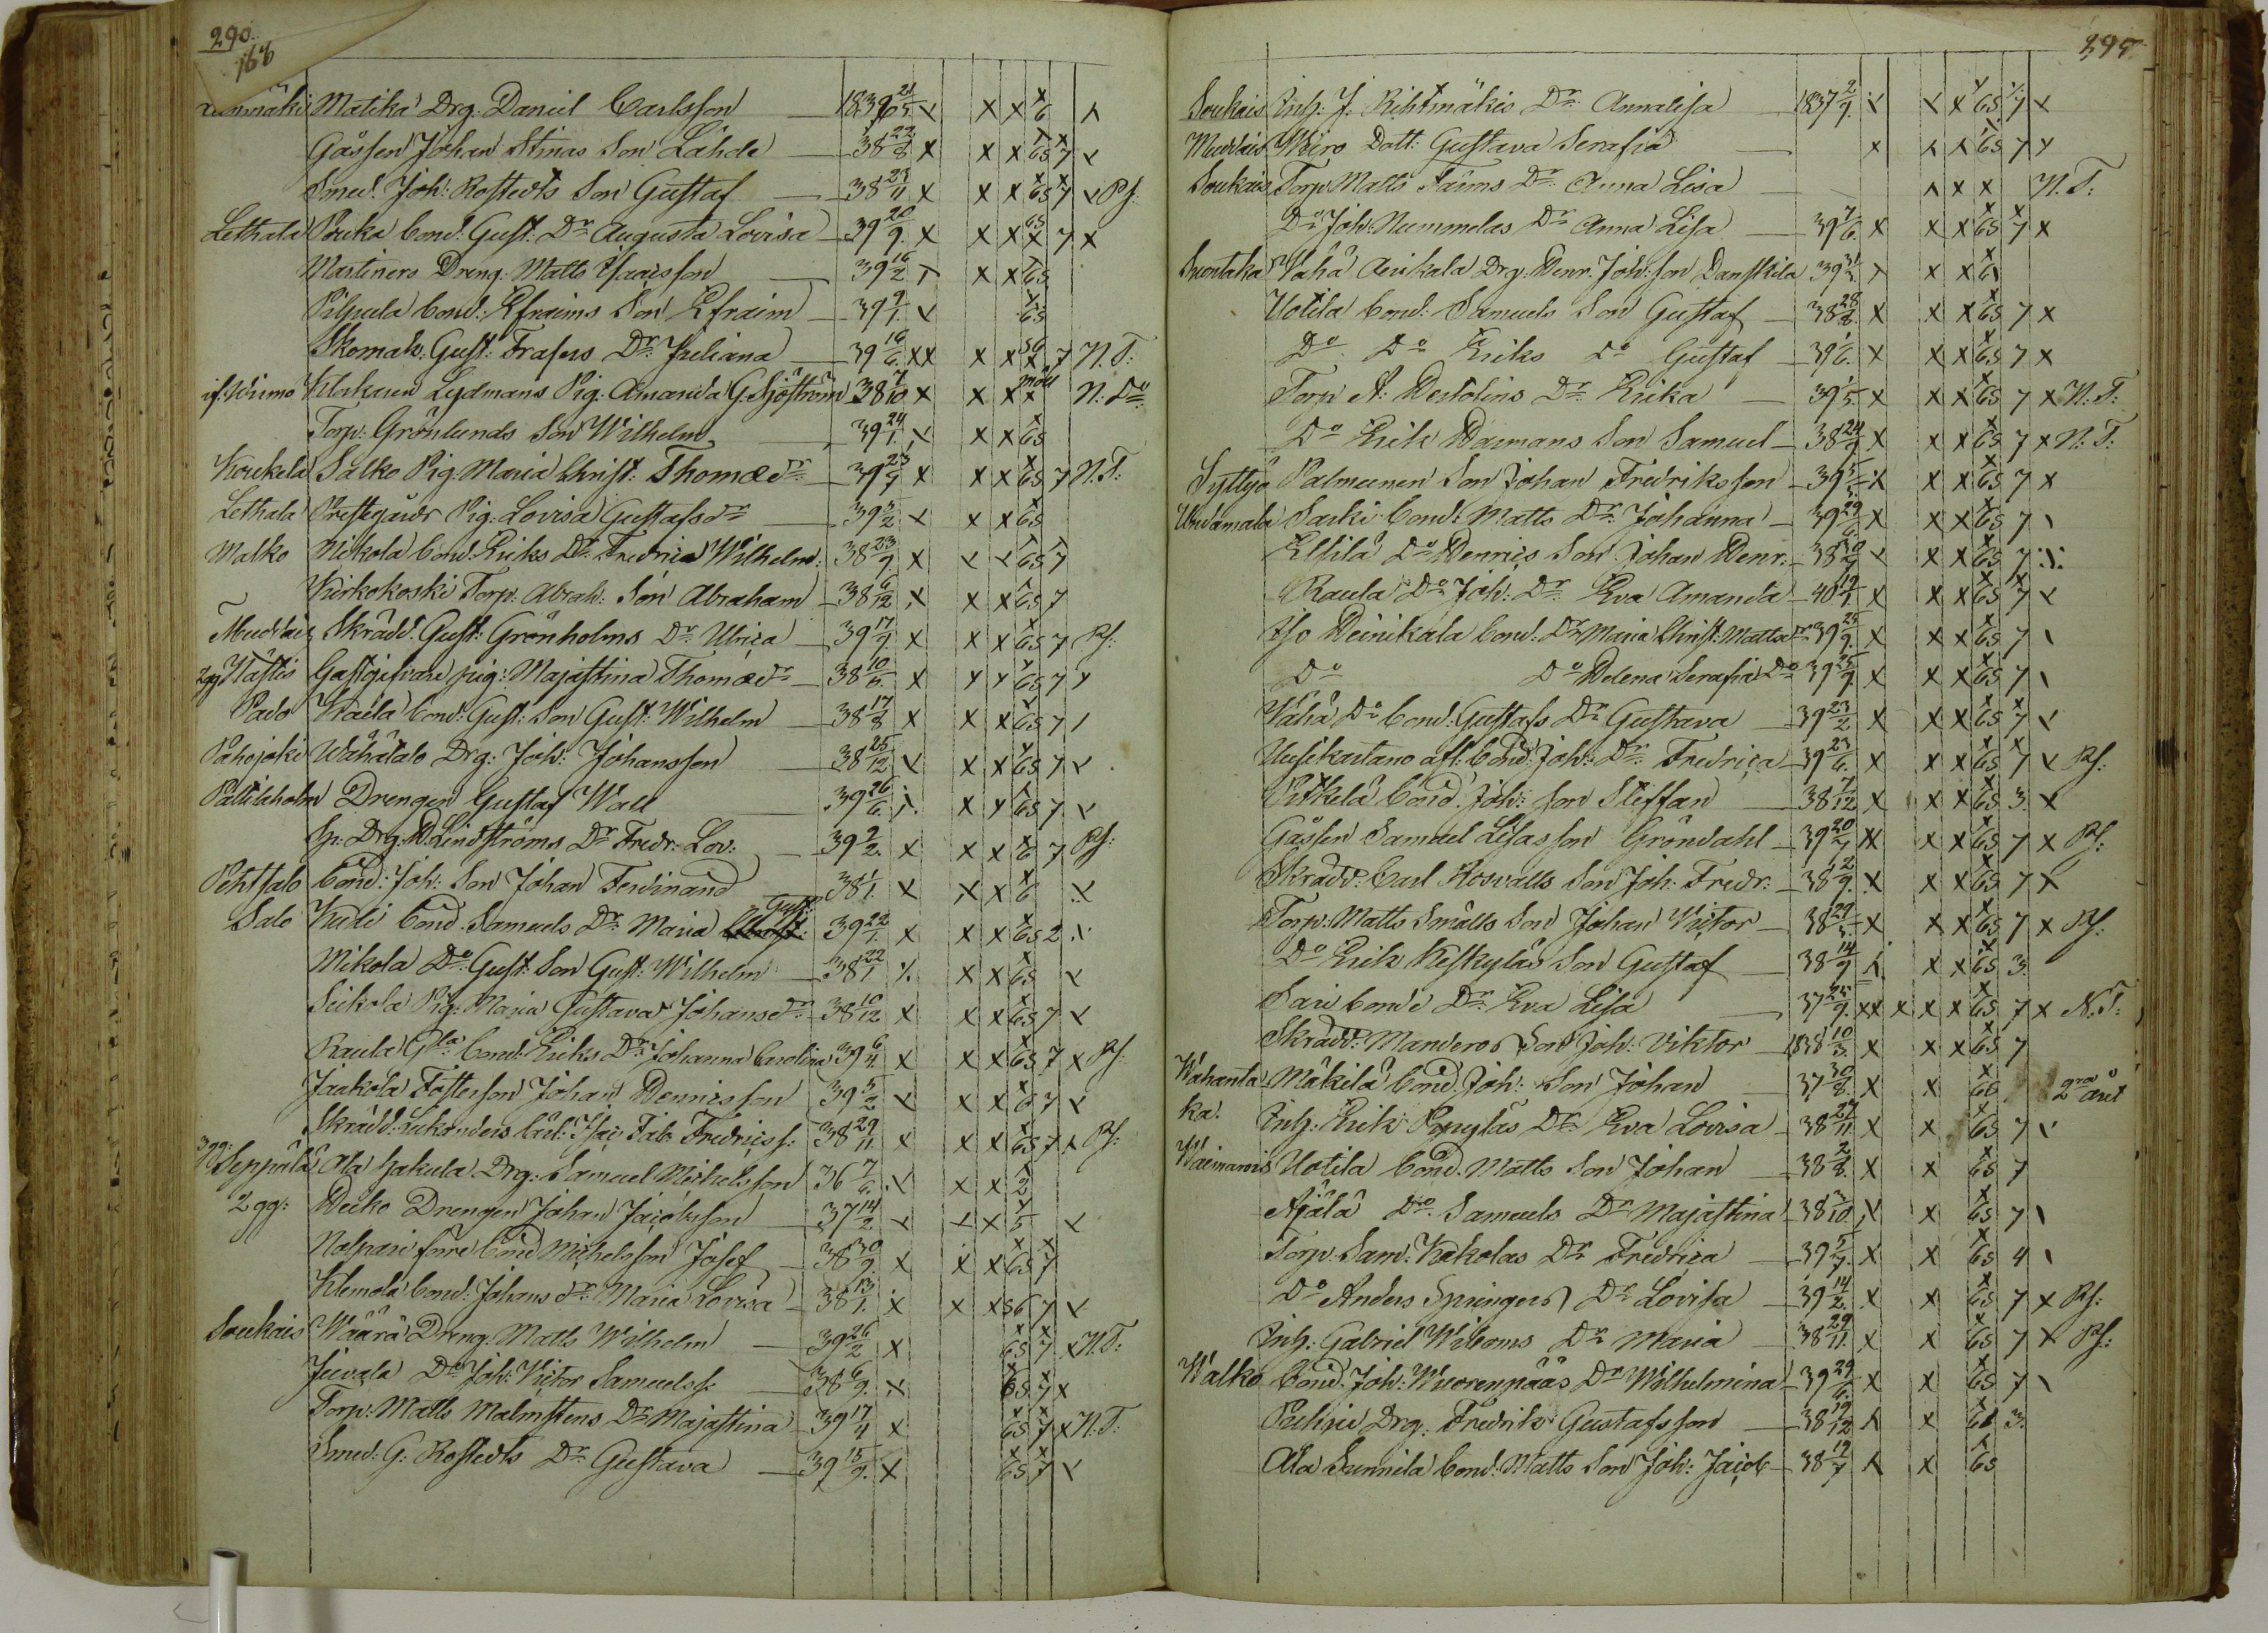 290.
166
Matika Drg. Daniel Carlsson 1839 21/5 x x x 6
Gåssen Johan Stinas Son Lähde 38 22/8 x x x 65 7 x
Smed. Joh: Rostedts Son Gustaf 38 23/11 x x x 65 7 x Ps:
Lethala Pouka bond. Gust. Dr Augusta Lovisa 39 20/9 x x x 65 7 x
Martiners Dreng. Matts Isacsson 39 16/2 x x 65
Pilpula bond: Efraims Son Efraim 39 9/1 x 65
Skomak. Gust: Frasers Dr Juliana 39 16/6 xx x x 56 7 N.T:
Klockaren Lydmans Pig. Amanda G. Sjöström 38 7/10 x x x N. Do
Torp: Grönlunds Son Wilhelm 39 24/1 x x x 65
Koukela Salko Pig. Maria Christ: Thomædr 39 x x x 65 7 N.T:
Lethala Prestegårds Pig. Lovisa Gustafsdr 39 5/2 x x x 65
Malko Nikola bond. Eriks Dr Fredrica Wilhelm: 38 23/9 x x x 65 7
Kirkokoski Torp: Abrah: Son Abraham 38 6/12 x x x 65 7
Skrädd. Gust: Grönholms Dr Ulrica 39 17/9 x x x 65 7 Ps:
Gästgifvare pig: Majastina Thomædr 38 10/6 x x x 65 7 x
Pado Kraila bond: Gust: Son Gust: Wilhelm 38 17/8 x x x 65 7
Pahojoki Wähätalo Drg: Joh: Johansson 38 25/12 x x x 65 7 x
Pältilaholm Drengen Gustaf Wall 39 26/6 x x x 65 7 x
Sp: Drg. W. Lindströms Dr Fredr: Lov: 39 2/2 x x x 6 7 Ps:
Pehtsalo bond: Joh: Son Johan Ferdinand 38 1/1 x x x 6 x
Salo bond. Samuels Dr Maria Gust: 39 22/1 x x x 65 2
Mikola Do Gust: Son Gust: Wilhelm 38 22/1 x x 65 x
Seikola Pig. Maria Gustava Johansdr 38 10/12 x x x 65 7 x
Raula Gla bond: Eriks Dr Johanna Carolina 39 6/4 x x x 65 7 x Ps:
Jaakola Fosterson Johan Henricsson 39 5/2 x x x 6 7 x
Skrädd. Isac Fab Fredricss: 38 29/11 x x x 65 7 x Ps:
Seppälä Ala hakula Drg: Samuel Michelsson 36 7/6 x x x 2
2 gg: Heiko Drengen Johan Jacobsson 37 14/2 x x x 5 x
förre bond Michelsson Josef 38 30/9 x x x 65 7
Klemola bond: Johans dr Maria Lovisa 38 13/1 x x x 56 7 x
Soukais Wäärä Dreng. Matts Wilhelm 39 26/2 x 65 7 x N.T:
Juvala Dr Joh: Victor Samuelss: 38 6/9 x 65 7 x
Torp: Matts Malmstens Dr Majastina 39 17/4 x 65 7 x N.T:
Smed: G: Rostedts Dr Gustava 39 15/9 x 65 7 x
295
Soukais Inh: J: Rihtmäkis Dr Annalisa 1837 2/9 x x x 65 7 x
Dott: Gustava Serafia x x x 65 7 x
Soukais Torp: Matts Farms Dr Anna Lisa x x x N.T:
Do Joh: Nummelas Dr Anna Lisa 39 7/6 x x x 65 7 x
Suontaka Vähä Anikala Drg. Henr. Joh:son Danskila 39 x x x 6
Uotila bond: Samuels Son Gustaf 38 28/8 x x x 65 7 x
Do Do Eriks Do Gustaf 39 1/6 x x x 65 7 x
Torp A: Hertolins Dr Erika 39 1/5 x x x 65 7 x N:T:
Do Erik Harmans Son Samuel 38 24/9 x x x 65 7 x N:T:
Syttyö Palmunen Son Johan Fredriksson 39 x x x 65 7 x
Untamala Sarki bond: Matts Dr Johanna 39 29/6 x x x 65 7
Elkilä Do Henrics Son Johan Henr: 38 x x x 65 7
Raula Do Joh: Dr Eva Amanda 40 19/1 x x x 65 7 x
Iso Heinikala bond: Dr Maria Christ: Mattsdr 39 25/9 x x x 65 7
Do Do Helena Serafia Do 39 25/9 x x x 65 7
Vähä Do bond: Gustafs Dr Gustava 39 23/2 x x x 65 7 x
Uusikartano afl: bond: Joh: Dr Fredrica 39 23/6 x x x 65 7 x Ps:
Pitkelä bond: Joh: son Steffan 38 7/12 x x x 65 3 x
Gåssen Samuel Lisasson Gröndahl 39 20/7 xx x x 65 7 x Ps:
Skrädd: Carl Rosvalls Son Joh: Fredr: 38 12/9 x x x 65 7 x
Torp: Matts Smålts Son Johan Victor 38 29/5 x x x 65 7 x Ps:
Do Erik Keskyläs Son Gustaf 38 14/9 x x x 65 3
Sari bonde Dr Eva Lisa 37 25/9 xx x x x 65 7 x N.T:
Skrädd: Manderos Son Joh: Viktor 1838 10/3 x x x 65 7
Wahanta Mäkilä bond. Joh: Son Johan 37 30/8 x x 66 2dra året
ka. Inh: Erik Dr Eva Lovisa 38 27/11 x x 65 7
Uotila bond. Matts Son Johan 38 2/8 x x 65 7
Äjälä Do Samuels Dr Majastina 38 3/10 x x 65 7
Torp. Sam: Kakolas Dr Fredrica 39 5/7 x x 65 4
Do Anders Springers Dr Lovisa 39 14/2 x x 65 7 x Ps:
Inh: Gabriel Wiboms Dr Maria 38 29/11 x x 65 7 x Ps:
Walko bond. Joh: Wuorenpääs Dr Wilhelmina 39 29/6 x x 65 7
Drg. Fredrik Gustafsson 38 19/12 x x 3
Ala Sunnila bond: Matts Son Joh: Jacob 38 19/7 x x 65